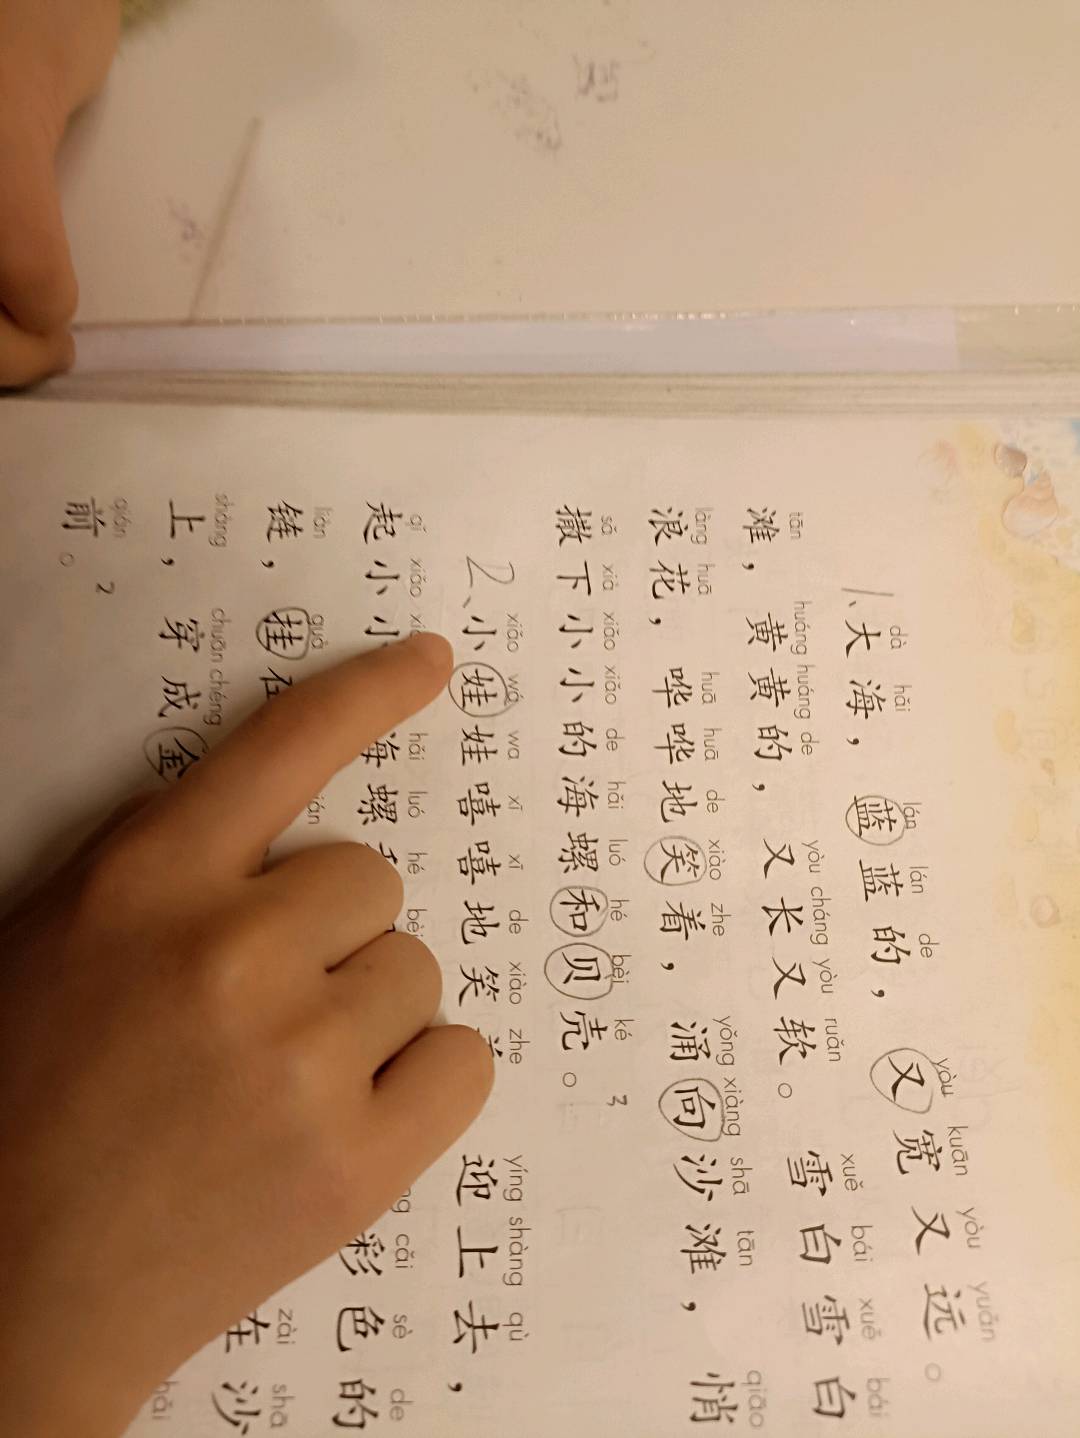 dà hǎi lán lán de yòu kuān yòu yuǎn
1、大海，蓝蓝的，又宽又远。
tān huáng huáng de yòu cháng yòu ruǎn xuě bái xuě bái
滩，黄黄的，又长又软。雪白雪白
làng huā huā huā de xiào zhe yǒng xiàng shā tān qiāo
浪花，哗哗地笑着，涌向沙滩，悄
sǎ xià xiǎo xiǎo de hǎi luó hé bèi ké
撒下小小的海螺和贝壳。 3
xiǎo wá wa xī xī de xiào zhe yíng shàng qù
2、小娃娃嘻嘻地笑 迎上去，
qǐ xiǎo hǎi luó hé bèi cǎi sè de
起小小 海螺 彩色的
liàn guà zài shā
链，挂在 在沙
shàng chuān chéng hǎi
上，穿成金
qián
前。 2